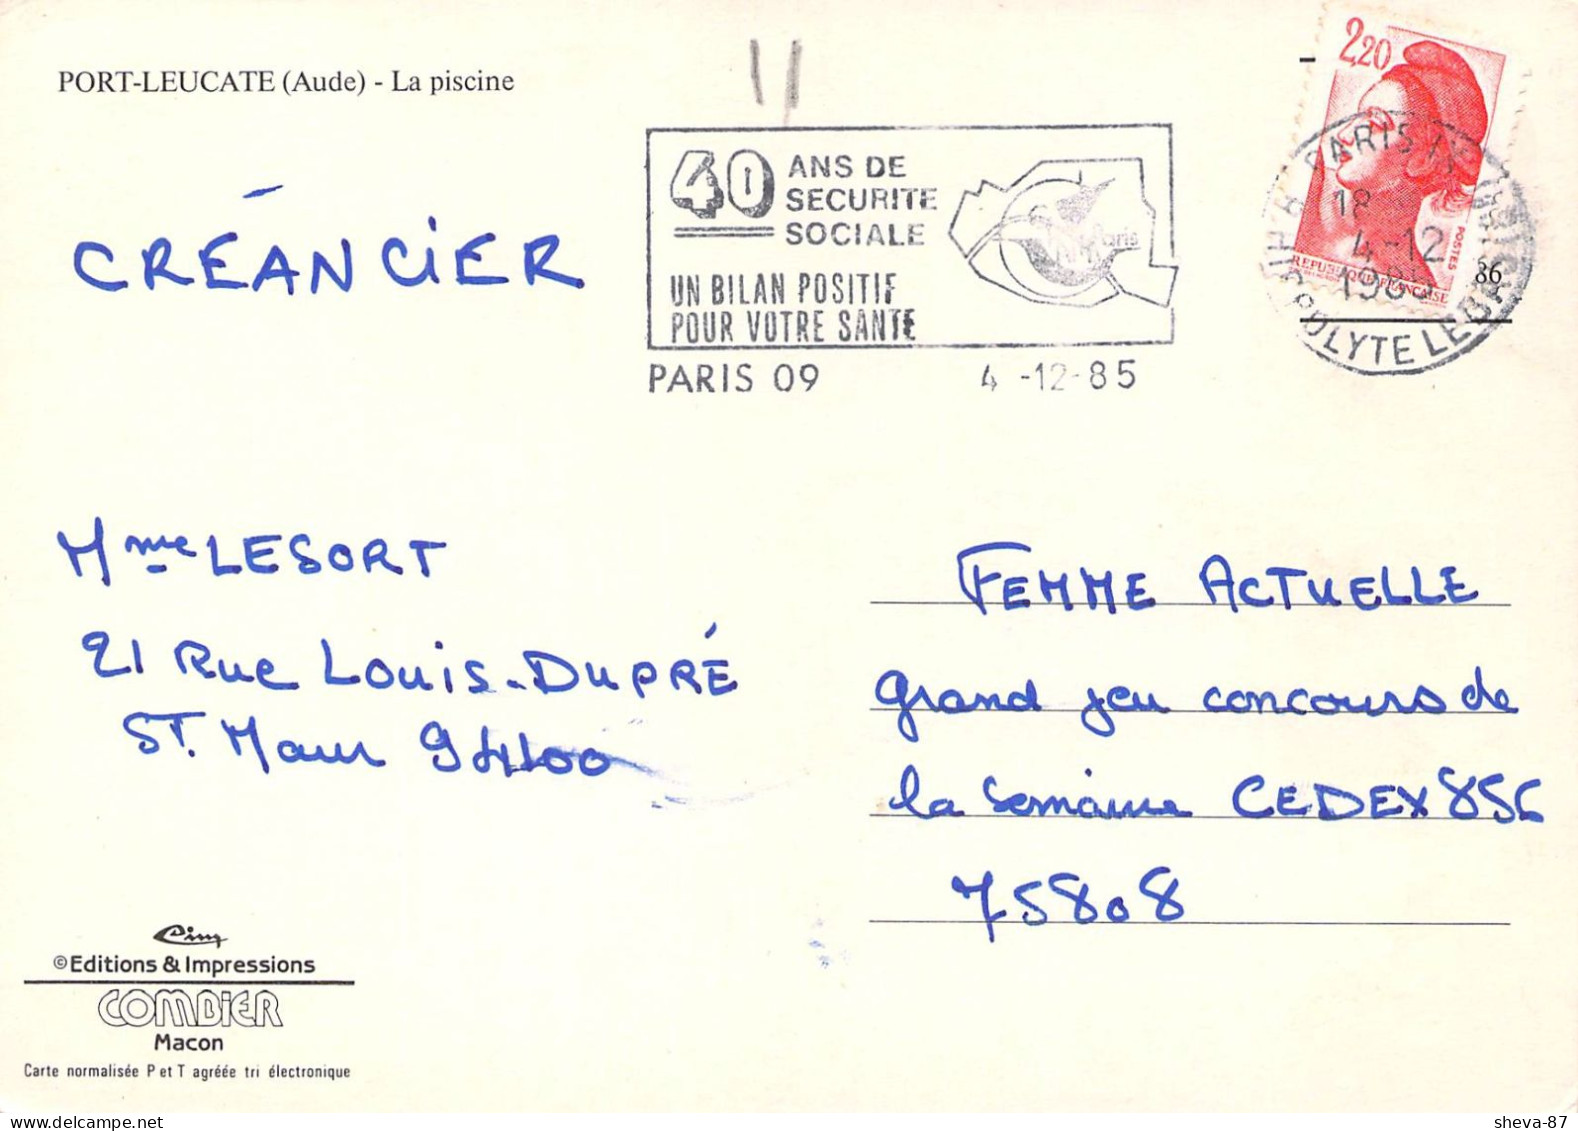 PORT-LEUCATE (Aude) - La piscine
2,20
POSTES
REPUBLIQUE FRANÇAISE
86
40 ANS DE
SECURITE
SOCIALE
Paris
UN BILAN POSITIF
POUR VOTRE SANTE
PARIS 09 4 -12-85
PARIS
18
4-12
CRÉANCIER
Mme LESORT
21 Rue Louis-Dupré
ST. Maur 94100
FEMME ACTUELLE
grand jeu concours de
la semaine CEDEX 856
75808
Cim
©Editions & Impressions
COMBIER
Macon
Carte normalisée P et T agréée tri électronique
sheva-87